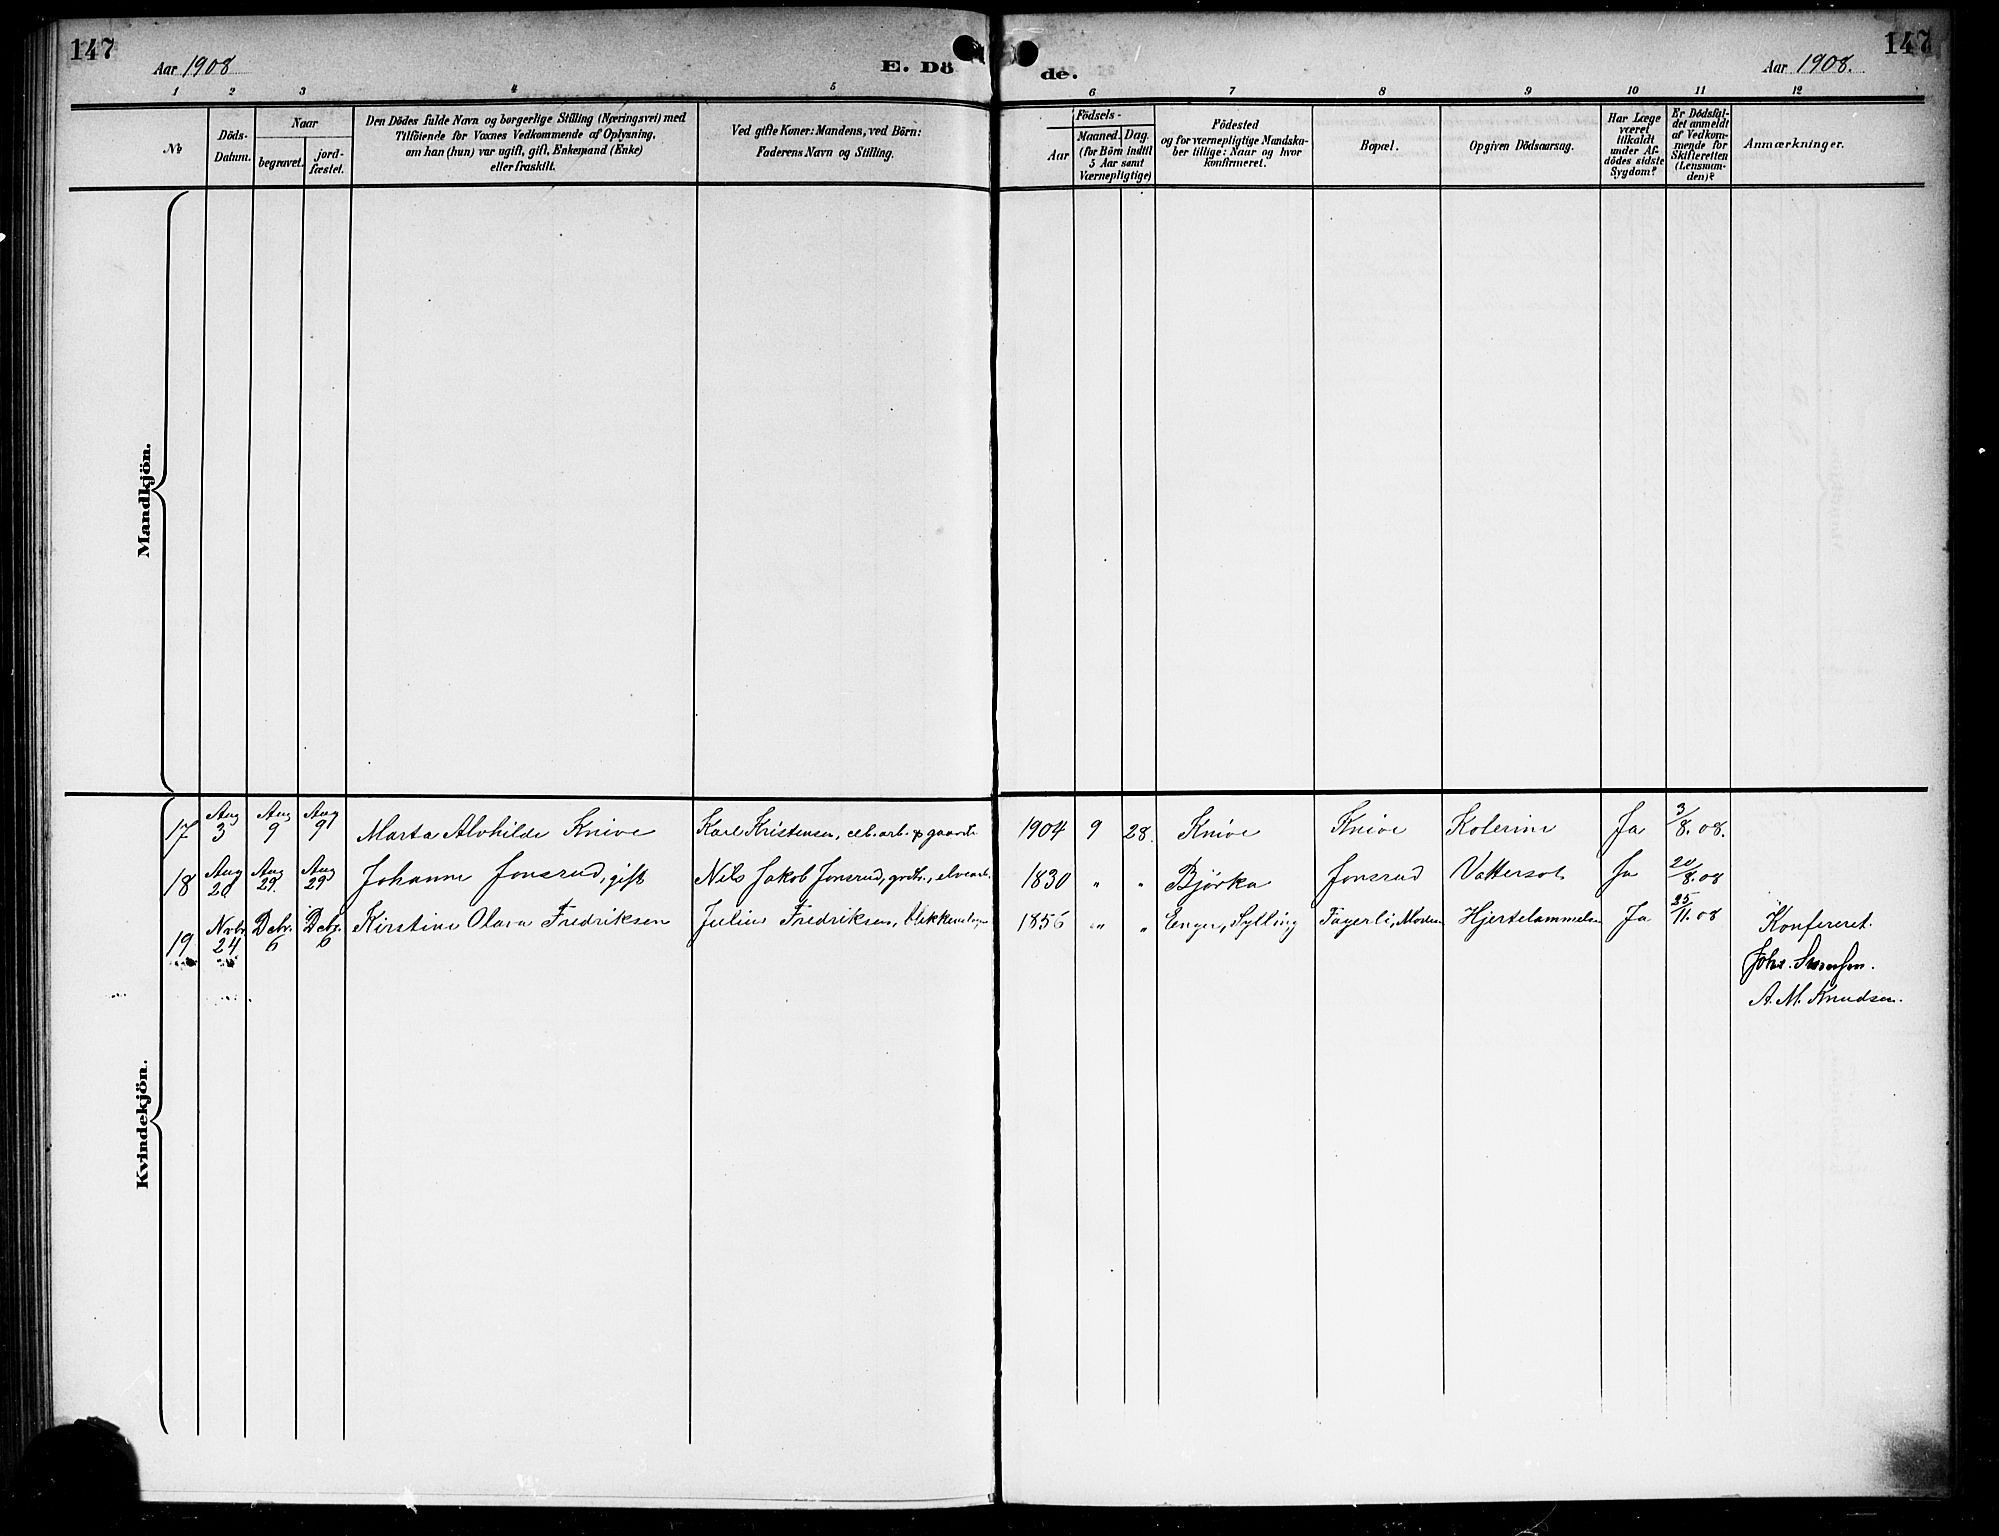 147
Aar 1908
E. Dö
1 2 3 4 5
№
Döds-
Datum.
Naar
begravet.
jord-
fæstet.
Den Dödes fulde Navn og borgerlige Stilling (Næringsvei) med
Tilföiende for Voxnes Vedkommende af Oplysning,
om han (hun) var ugift, gift, Enkemand (Enke)
eller fraskilt.
Ved gifte Koner: Mandens, ved Börn:
Faderens Navn og Stilling.
147
de.
Aar 1908.
6 7 8 9 10 11 12
Födsels-
Aar
Maaned. Dag.
(for Börn indtil
5 Aar samt
Værnepligtige)
Födested
og for værnepligtige Mandska-
ber tillige: Naar og hvor
konfirmeret.
Bopæl.
Opgiven Dödsaarsag.
Har Læge
været
tilkaldt
under Af-
dödes sidste
Sygdom?
Er Dödsfal-
det anmeldt
af Vedkom-
mende for
Skifteretten
(Lensman-
den)?
Anmærkninger.
Mandkjön.
Kvindekjön.
17 Aug 3 Aug 9 Aug 9 Marta Alvhilde Knive Karl Kristensen, elv.arb. 1904 9 28. Knive Knive Kolerine Ja 3/8. 08.
18 Aug 20 Aug 29. Aug 29 Johanne Jonsrud, gift Nils Jakob Jonsrud, grdbr., elvearb. 1830 " " Bjørka Jonsrud Vattersot Ja 20/8. 08
19 Novbr. 24 Debr. 6 Debr. 6 Kirstine Olava Fredriksen Julius Fredriksen, 1856 " " Enger, Sylling Fagerli, Modum Hjertelammelse Ja 25/11. 08
Konfereret.
A. M. Knudsen.